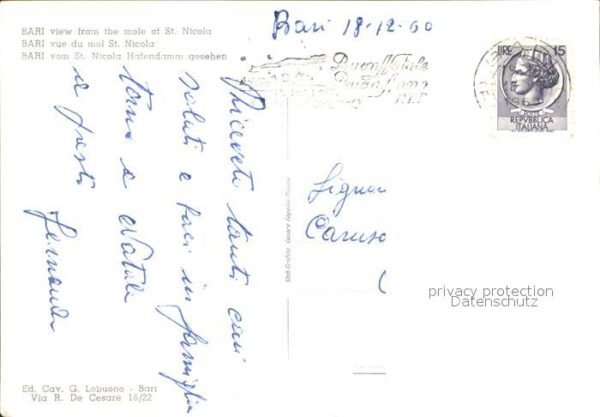 BARI view from the mole of St. Nicola
BARI vue du mol St. Nicola
BARI vom St. Nicola Hafendamm gesehen
Bari 18-12-60
Buon Natale
Buon Anno
LIRE 15
REPVBBLICA
ITALIANA
Ricevete tanti cari
saluti e baci in famiglia
torno a Natale
a presto
Fernanda
Signor
Caruso
privacy protection
Datenschutz
Ed. Cav. G. Lobuono - Bari
Via R. De Cesare 16/22